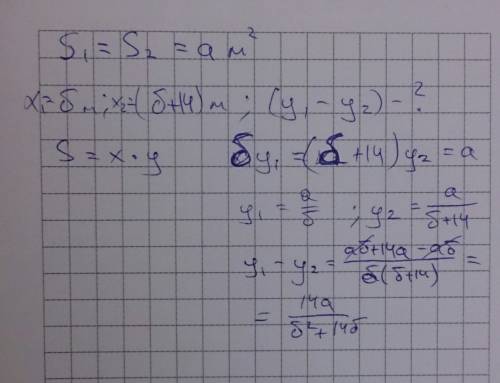 S₁ = S₂ = a м²
x₁=б м; x₂=(б+14) м ; (y₁ - y₂) - ?
S = x · y бy₁ = (б+14) y₂ = a
y₁ = a/б ; y₂ = a/(б+14)
y₁ - y₂ = (aб+14a-aб)/(б(б+14)) =
= 14a/(б²+14б)